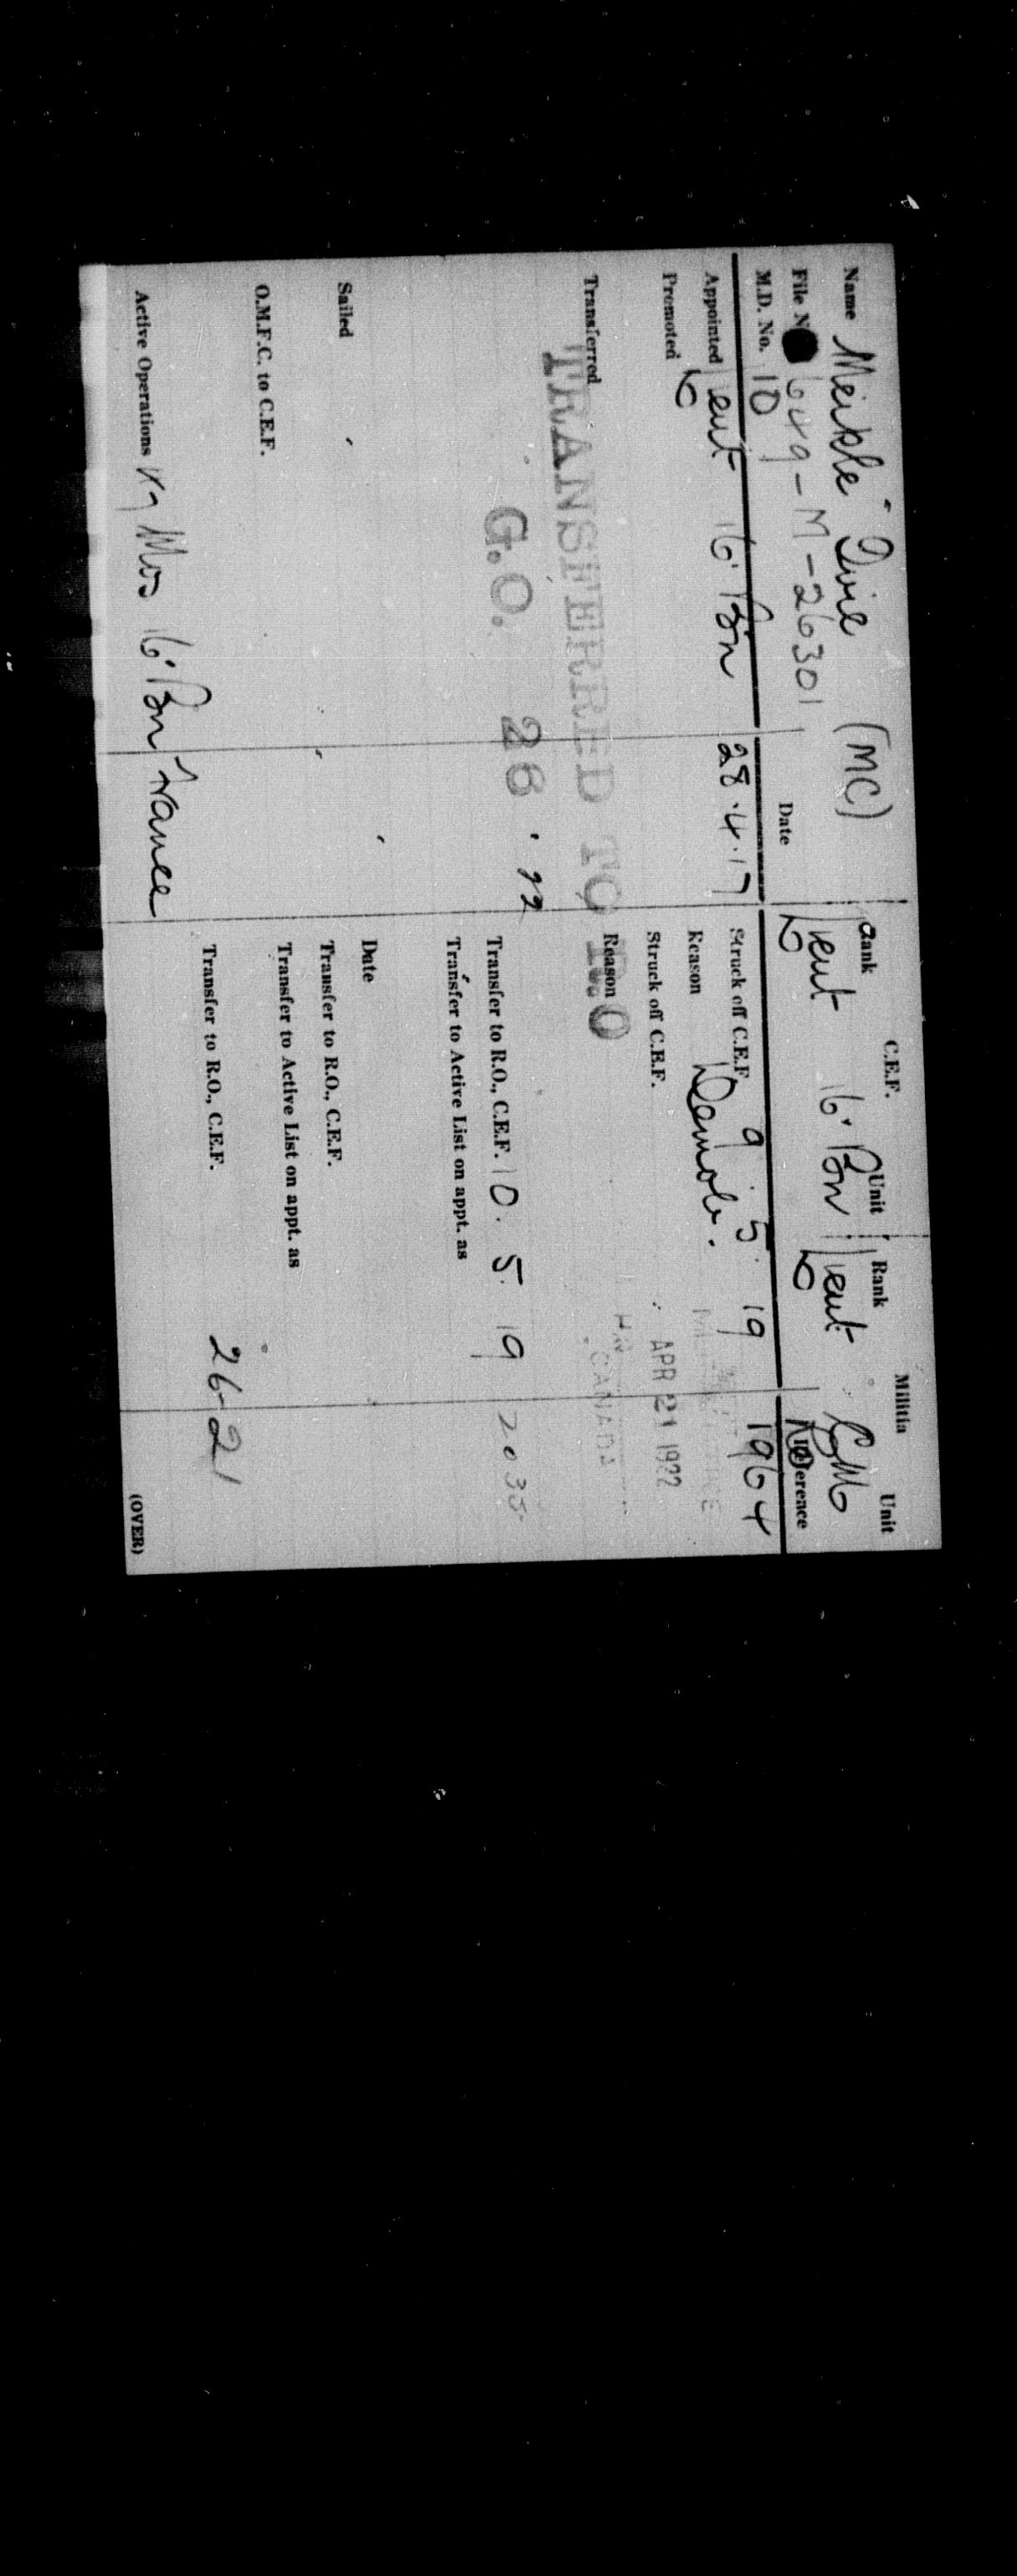 C.E.F. Militia
Name Meikle Ivie (MC) Rank Unit Rank Unit
File No 649-M-26301 Lieut 16' Bn Lieut
M.D. No. 10 Date Reference
Appointed Lieut 16' Bn 28.4.17 Struck off C.E.F. 9.5.19 1964
Promoted Reason Demob.
Struck off C.E.F. APR 21 1922
Transferred Reason
TRANSFERRED TO R.O CANADA
G.O. 26.22 Transfer to R.O., C.E.F. 10.5.19 2035
Transfer to Active List on appt. as
Sailed Date
Transfer to R.O., C.E.F.
O.M.F.C. to C.E.F. Transfer to Active List on appt. as
Transfer to R.O., C.E.F. 26-21
Active Operations 16' Bn France
(OVER)